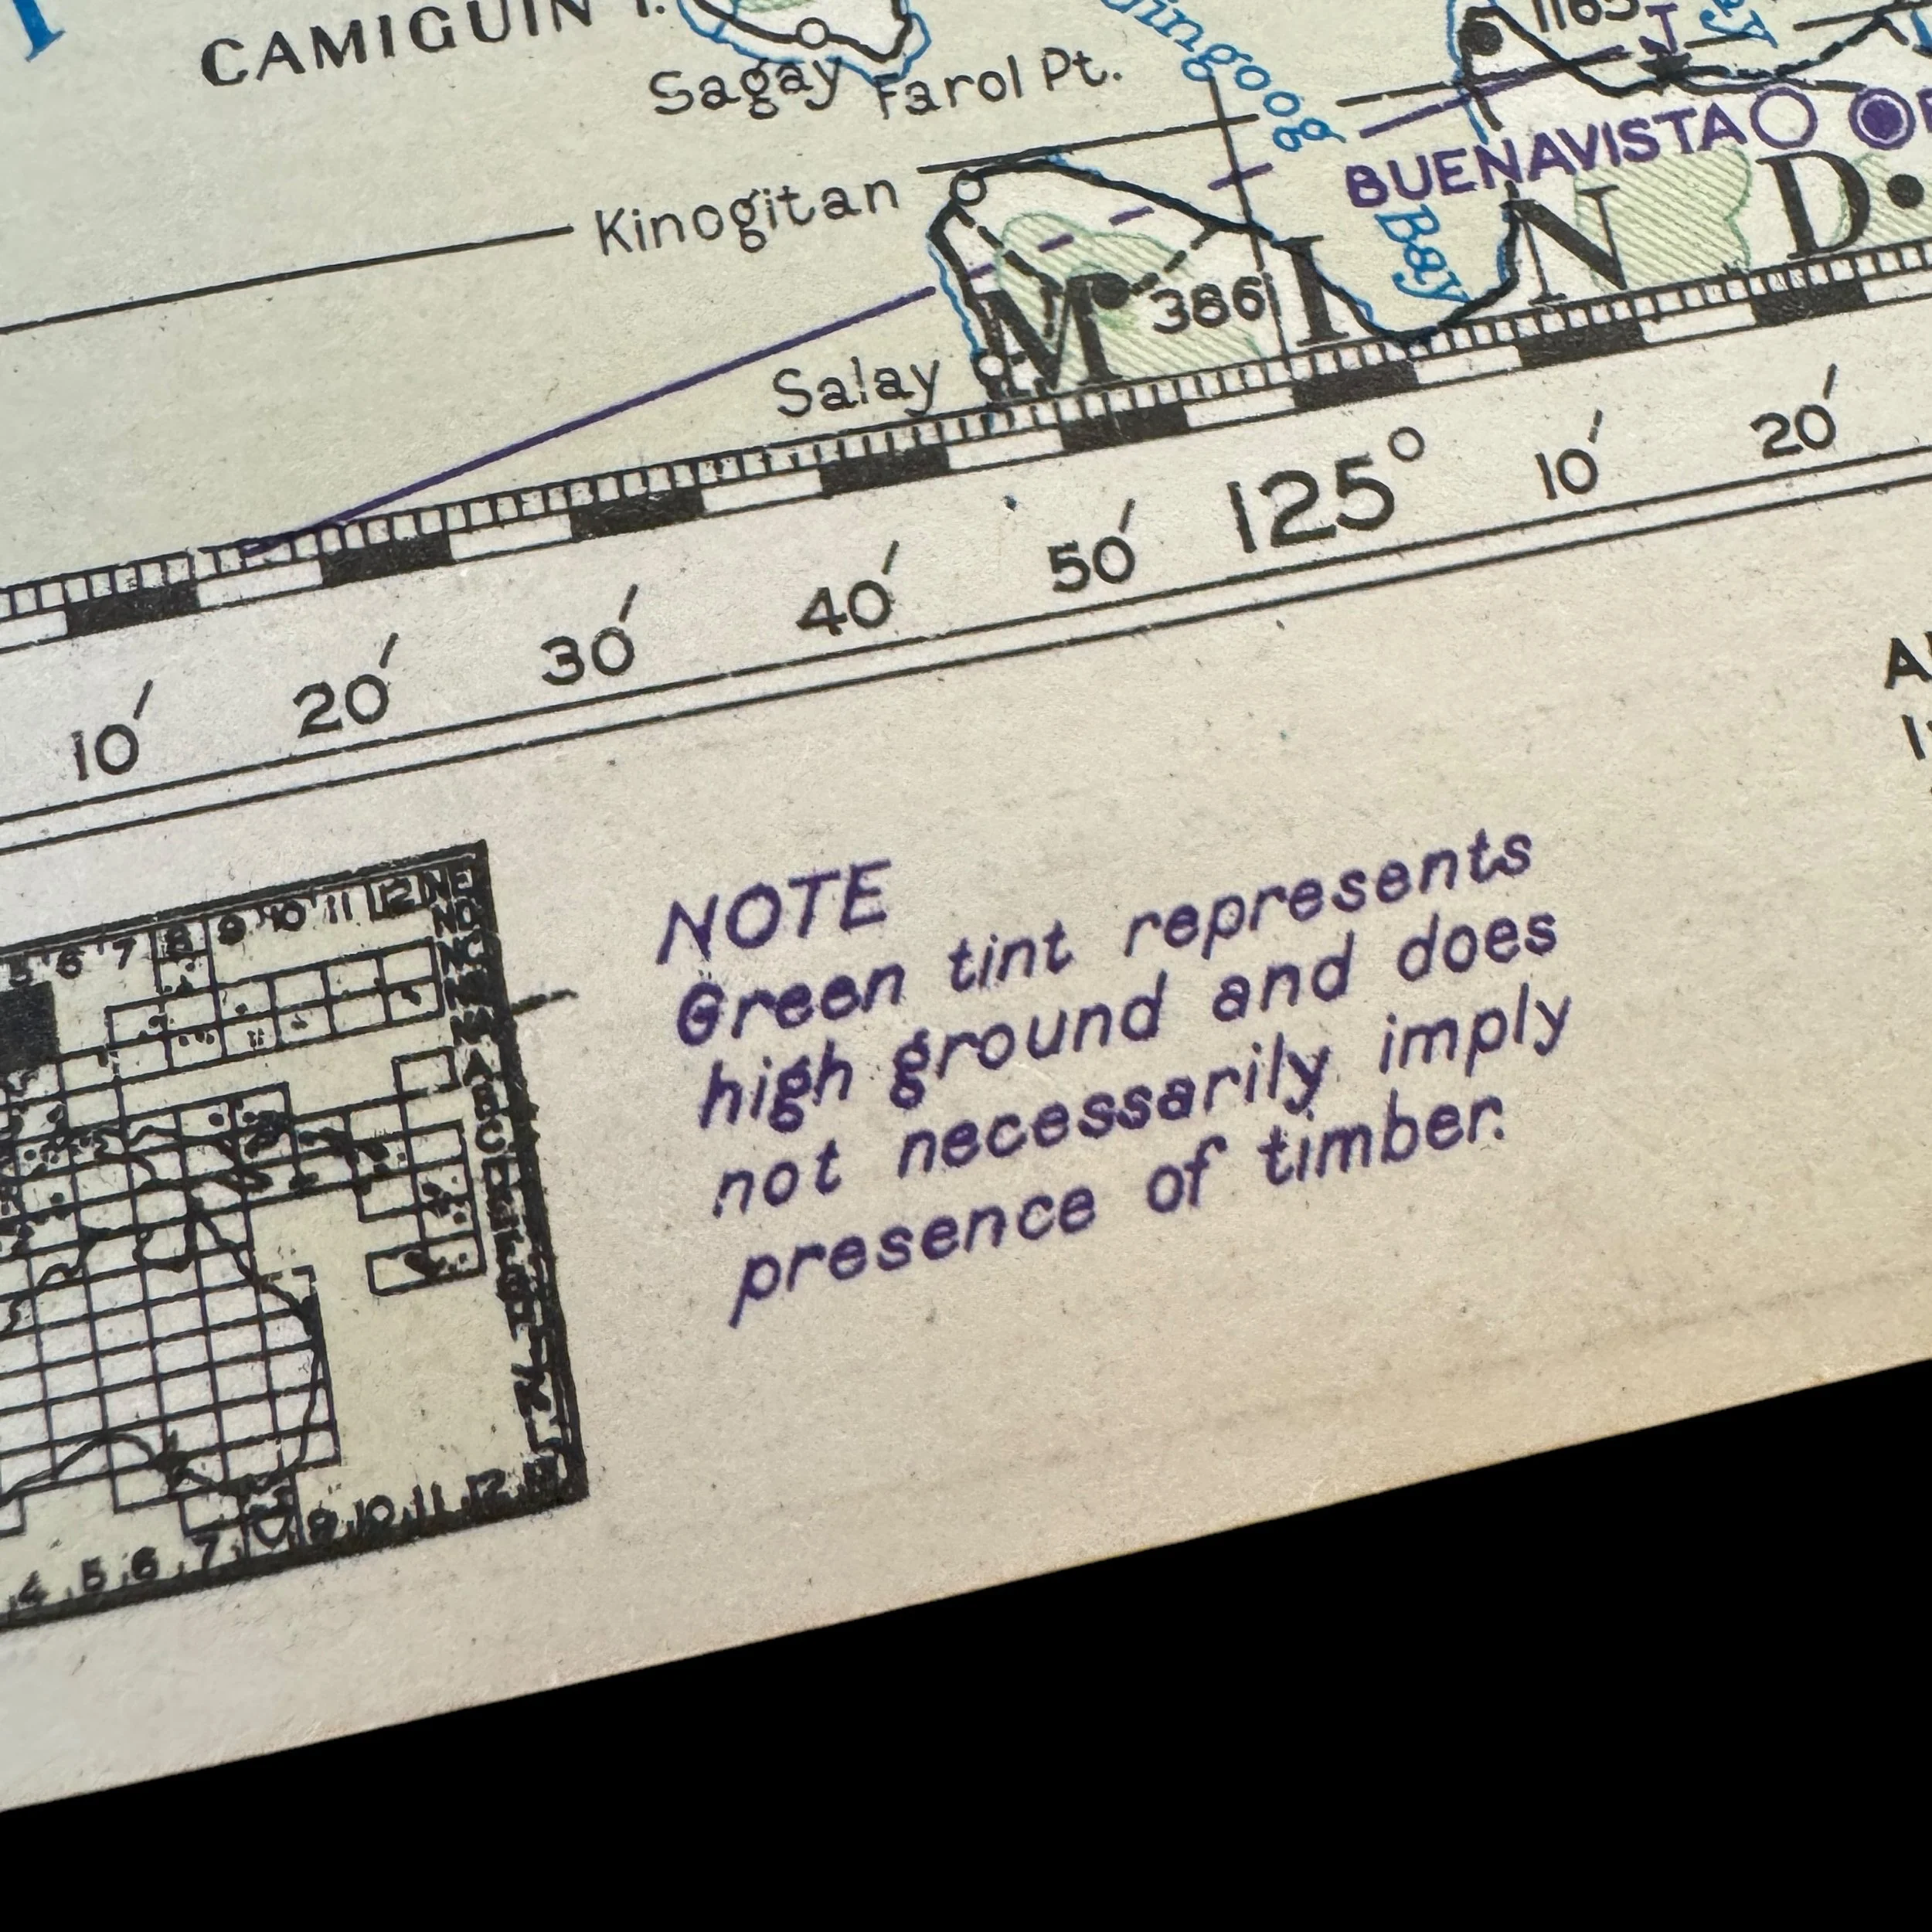 CAMIGUIN I.
Sagay
Farol Pt.
ingoog
Bay
1165
Kinogitan
BUENAVISTA
386
Salay
M I N D
10′ 20′ 30′ 40′ 50′ 125° 10′ 20′
5 6 7 8 9 10 11 12 NE
ND
NC
NB
NA
A
B
C
4 5 6 7 8 9 10 11 12
NOTE
Green tint represents
high ground and does
not necessarily imply
presence of timber.